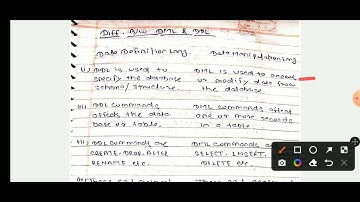 Diff. B/w DML & DDL
Data Definition Lang. Data Manipulation Lang.
(i) DDL is used to DML is used to access
specify the database or modify data from
schema/structure. the database.
(ii) DDL commands DML commands affect
affects the data one or more records
base or table. in a table.
(iii) DDL commands are DML commands
CREATE, DROP, ALTER SELECT, INSERT,
RENAME etc. DELETE etc.